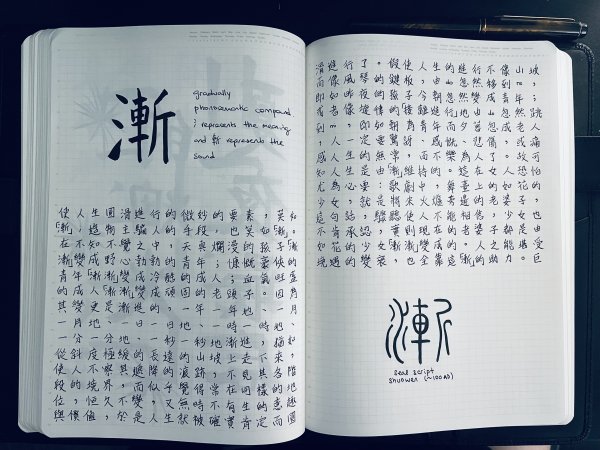 漸
gradually
phonosemantic compound
氵represents the meaning
and 斬 represents the
sound
使人生圓滑進行的微妙的要素,莫如
「漸」;造物主騙人的手段,也莫如「漸」。
在不知不覺之中,天真爛漫的孩子「漸
漸」變成野心勃勃的青年;慷慨豪俠的
青年「漸漸」變成冷酷的成人;血氣旺盛的
成人「漸漸」變成頑固的老頭子。因為
其變更是漸進的,一年一年地、一月
一月地、一日一日地、一時一時地、
一分一分地、一秒一秒地漸進,猶如
從斜度極緩的長遠的山坡上走下來,
使人不察其遞降的痕跡,不見其各階
段的境界,而似乎覺得常在同樣的地
位,恆久不變,又無時不有生的意趣
與價值,於是人生就被確實肯定,而圓
滑進行了。假使人生的進行不像山坡
而像風琴的鍵板,由do忽然移到re,
即如昨夜的孩子今朝忽然變成青年;
或者像旋律的「接離進行」地由do忽然跳
到mi,即如朝為青年而夕暮忽成老人,
人一定要驚訝、感慨、悲傷、或痛
感人生的無常,而不樂為人了。故可
知人生是由「漸」維持的。這在女人恐怕
尤為必要:歌劇中,舞臺上的如花的
少女,就是將來火爐旁邊的老婆子,這
句話,驟聽使人不能相信,少女也
不肯承認,實則現在的老婆子都是由
如花的少女「漸漸」變成的。人之能堪受
境遇的變衰,也全靠這「漸」的助力。巨
漸
Seal script
Shuowen (~100AD)